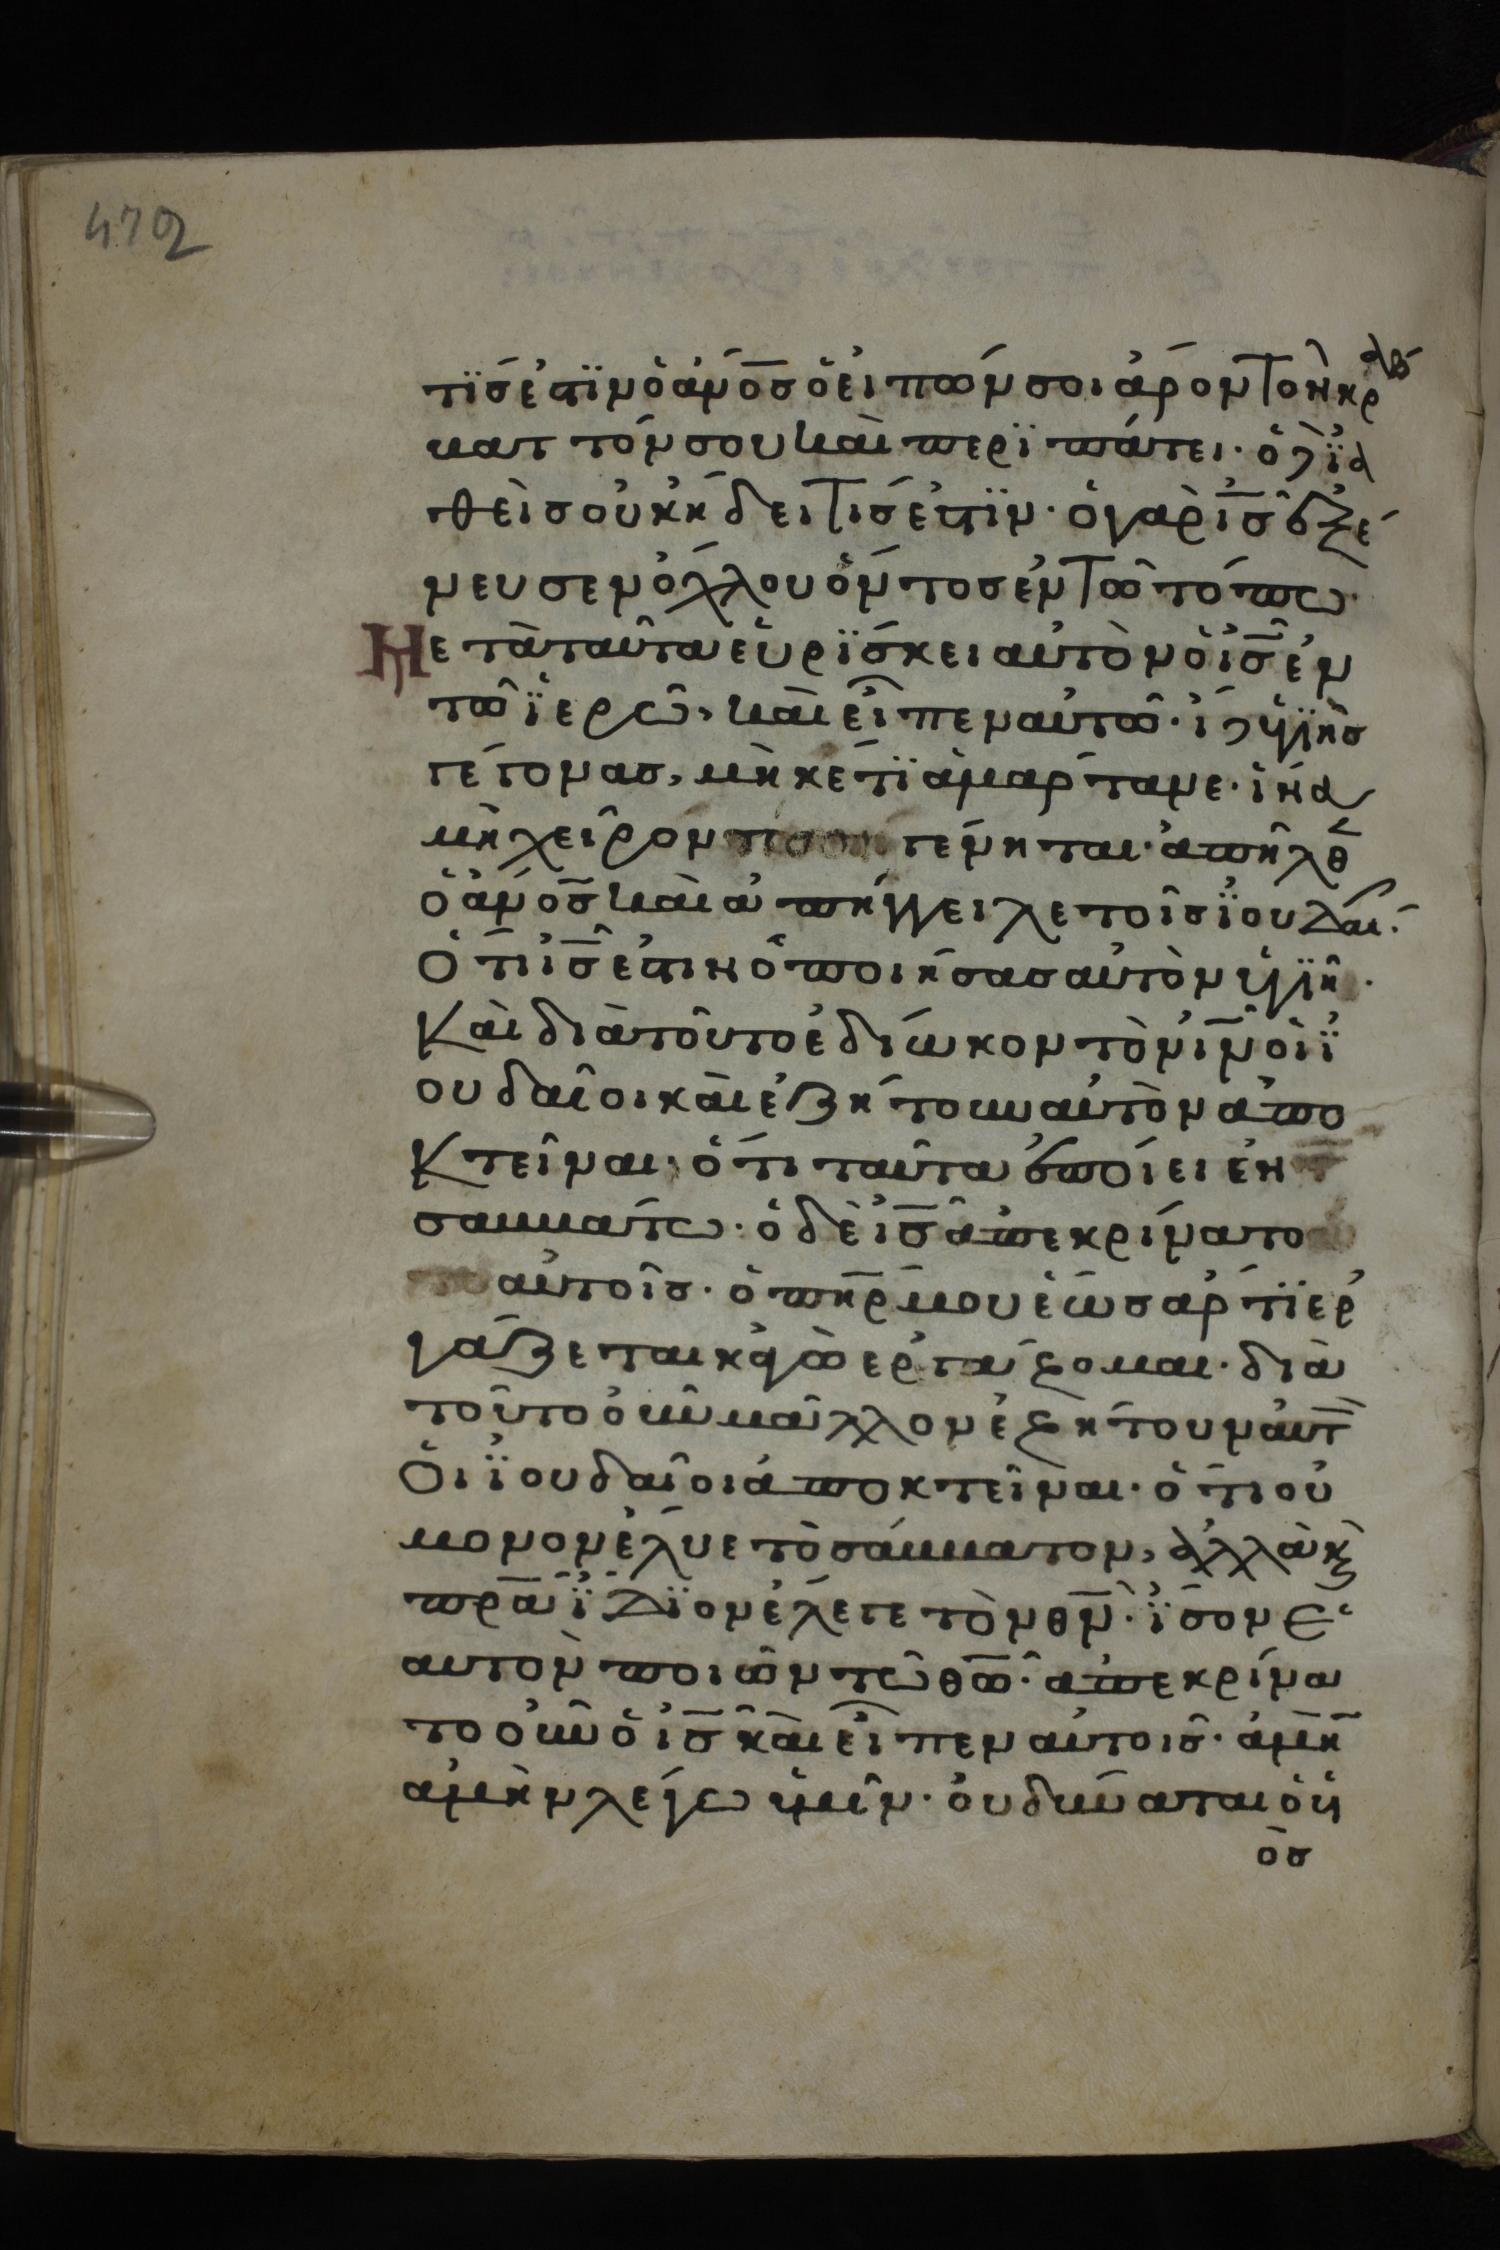 472
τίς ἐστϊν ὁ ἀνο̅σ ὁ εἰπών σοι ἆρον τὸν κρά
βαττόν σου καὶ περϊπάτει· ὁ δὲ ϊα
θεὶς οὐκ ᾔδει τίς ἐστϊν· ὁ γὰρ ι̅σ̅ ἐξέ
νευσεν ὄχλου ὄντος ἐν τῶ τόπω·
Μετὰ ταῦτα εὑρϊσκει αὐτὸν ὁ ι̅σ̅ ἐν
τῶ ϊερῶ, καὶ εἶπεν αὐτῶ· ἴδε ὑγϊὴς
γέγονας, μηκέτϊ ἁμάρτανε· ἵνα
μὴ χεῖρόν τί σοι γένηται· ἀπῆλθε
ὁ ἀνο̅σ καὶ ἀπήγγειλε τοῖς ϊουδαί·
ὅτι ι̅σ̅ ἐστὶν ὁ ποιήσας αὐτὸν ὑγϊῆ·
Καὶ διὰ τοῦτο ἐδίωκον τὸν ι̅ν̅ οἱ ϊ
ουδαῖοι καὶ ἐζήτουν αὐτὸν ἀπο
κτεῖναι· ὅτι ταῦτα ἐποίει ἐν
σαββάτω· ὁ δὲ ι̅σ̅ ἀπεκρίνατο
αὐτοῖς· ὁ πη̅ρ μου ἕως ἄρτϊ ἐρ
γάζεται κἀγὼ ἐργάζομαι· διὰ
τοῦτο οὖν μᾶλλον ἐζήτουν αὐτ
οἱ ϊουδαῖοι ἀποκτεῖναι· ὅτι οὐ
μόνον ἔλυε τὸ σάββατον, ἀλλὰ κ
πρ̅α ϊδϊον ἔλεγε τὸν θ̅ν̅· ϊσον ἑ
αυτὸν ποιῶν τῶ θ̅ω̅· ἀπεκρίνα
το οὖν ὁ ι̅σ̅ καὶ εἶπεν αὐτοῖς· ἀμὴ
ἀμὴν λέγω ὑμῖν· οὐ δύναται ὁ ὑ
ὸς